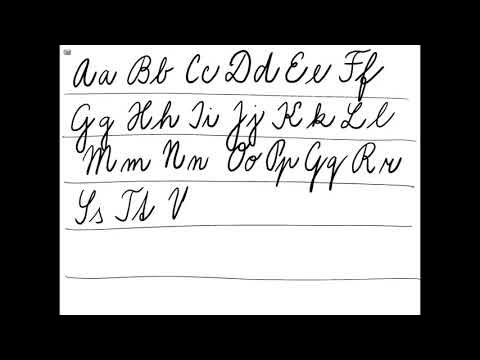 Aa Bb Cc Dd Ee Ff
Gg Hh Ii Jj Kk Ll
Mm Nn Oo Pp Qq Rr
Ss Tt V